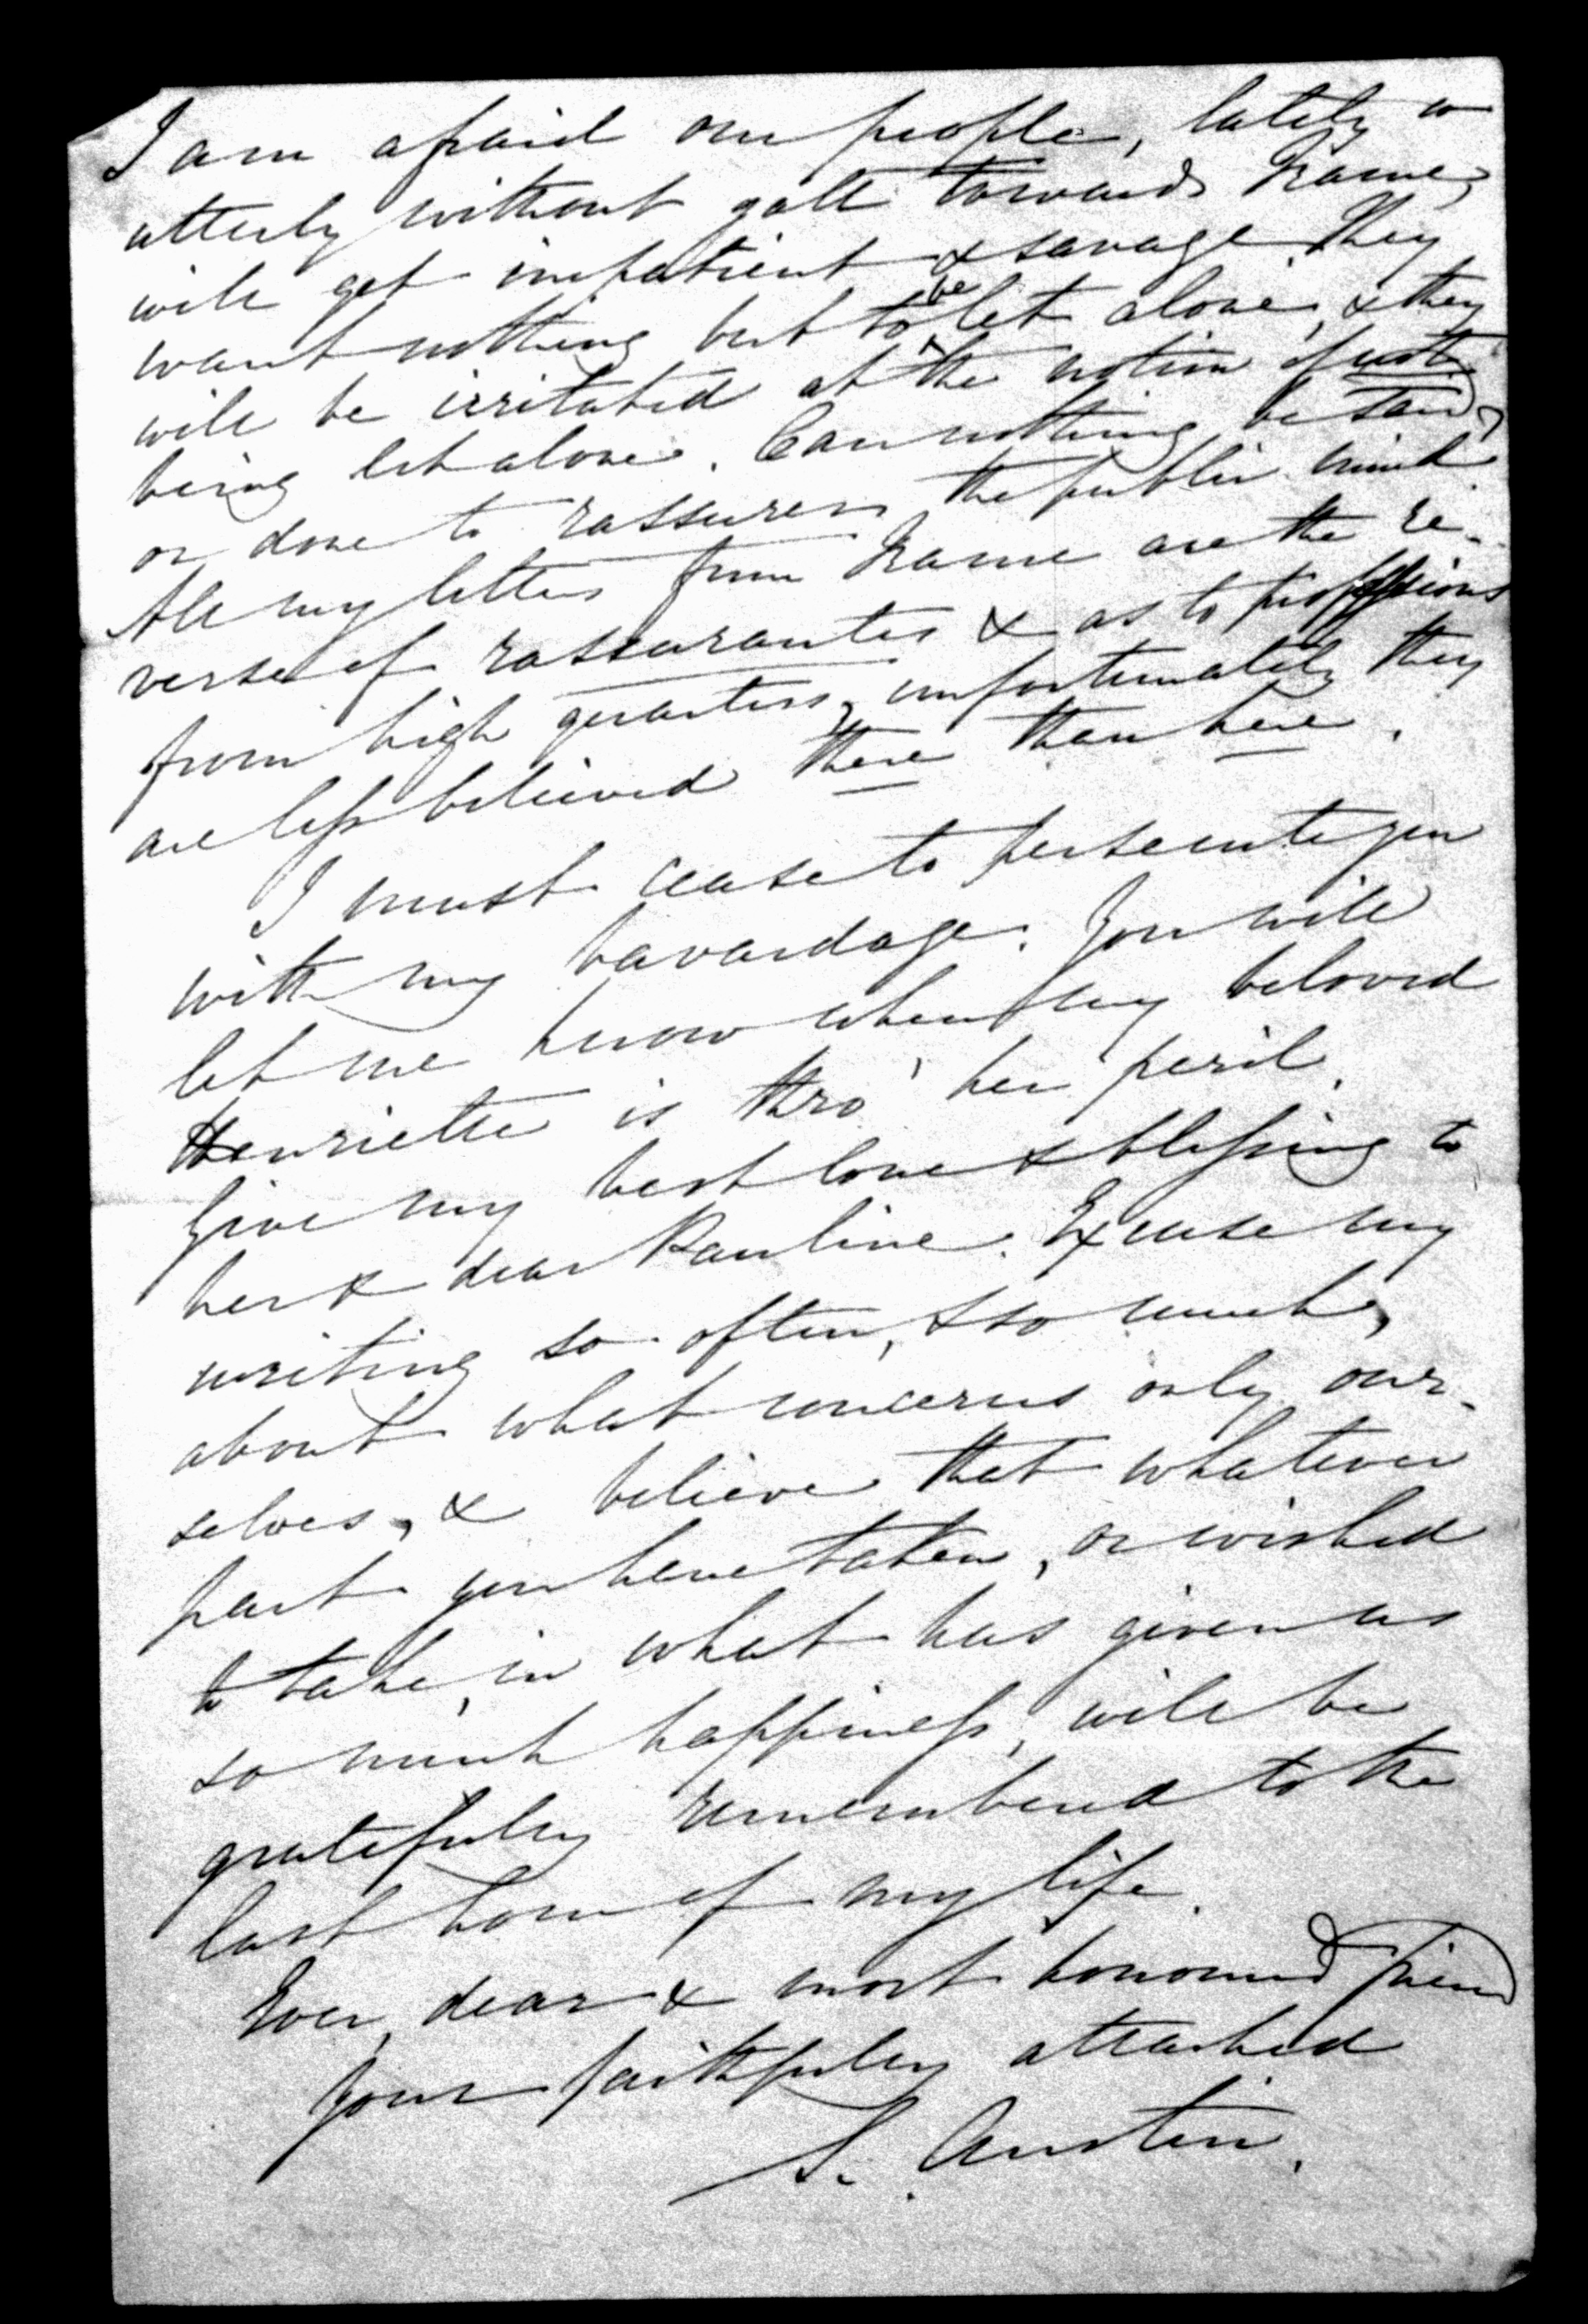 I am afraid our people, lately so
utterly without gall towards France,
will get impatient & savage. They
want nothing but to be let alone, & they
will be irritated at the notion of not
being let alone. Can nothing be said,
or done to rassurer the public mind.
All my letters from France are the re-
verse of rassurantes & as to professions
from high quarters, unfortunately they
are less believed there than here.
I must cease to persecute you
with my bavardage. You will
let me know when my beloved
Henriette is thro' her peril.
Give my best love & blessing to
her & dear Pauline. Excuse my
writing so often, & so much,
about what concerns only our-
selves, & believe that whatever
part you have taken, or wished
to take, in what has given us
so much happiness, will be
gratefully remembered to the
last hour of my life.
Ever, dear & most honoured Friend
your faithfully attached
S. Austin.